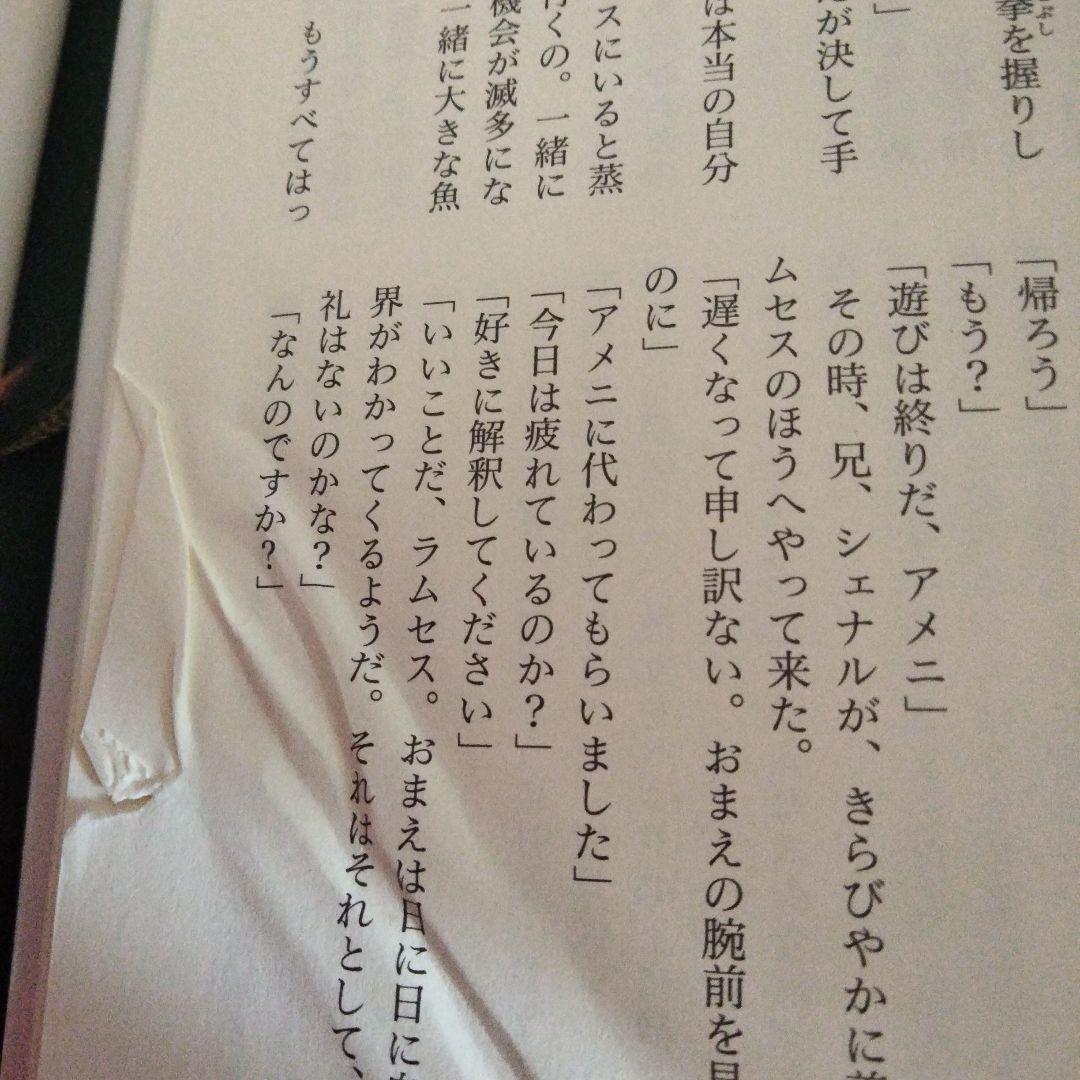 拳を握りし
こぶし
」
だが決して手
は本当の自分
スにいると蒸
行くの。一緒に
機会が滅多にな
一緒に大きな魚
もうすべてはっ
「帰ろう」
「もう？」
「遊びは終りだ、アメニ」
その時、兄、シェナルが、きらびやかに着
ムセスのほうへやって来た。
「遅くなって申し訳ない。おまえの腕前を見
のに」
「アメニに代わってもらいました」
「今日は疲れているのか？」
「好きに解釈してください」
「いいことだ、ラムセス。おまえは日に日に
界がわかってくるようだ。それはそれとして、
礼はないのかな？」
「なんのですか？」